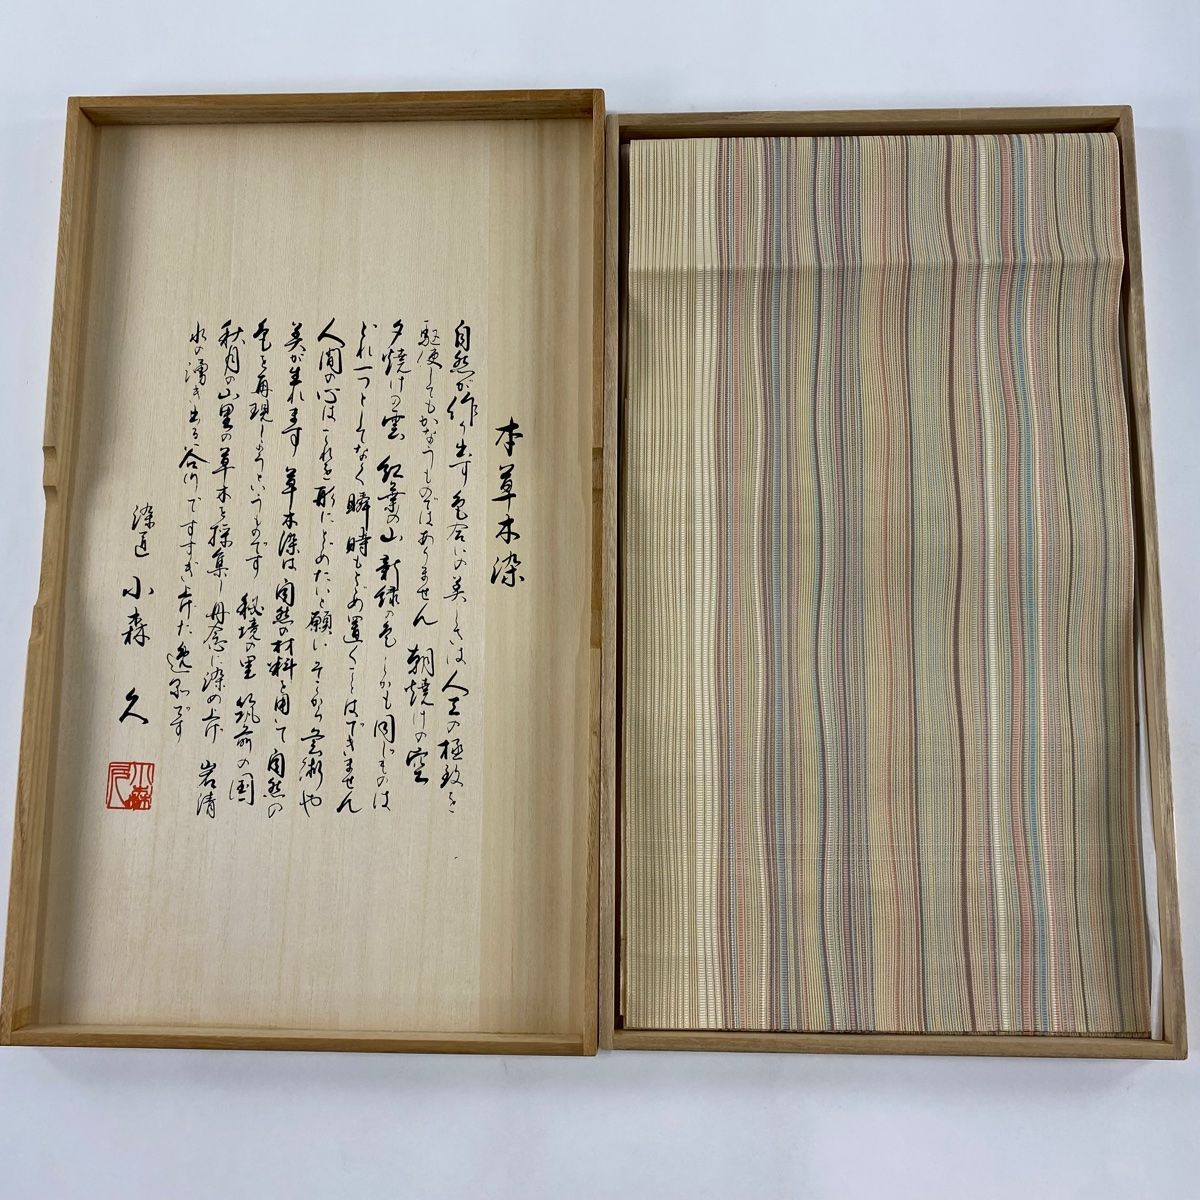 本草木染
自然が作り出す色合いの美しさは人工の極致を
駆使してもかなうものではありません 朝焼けの空
夕焼けの雲 紅葉の山 新緑の色しかも同じものは
どれ一つとしてなく瞬時もとめ置くことはできません
人間の心はこれを形にとどめたいと願いそこから芸術や
美が生れます 草木染は自然の材料を用いて自然の
色を再現しようというものです 秘境の里 筑前の国
秋月の山里の草木を採集し丹念に染め上げ 岩清
水の湧き出る谷川ですすぎ上げた逸品です
染匠 小森 久
小森久